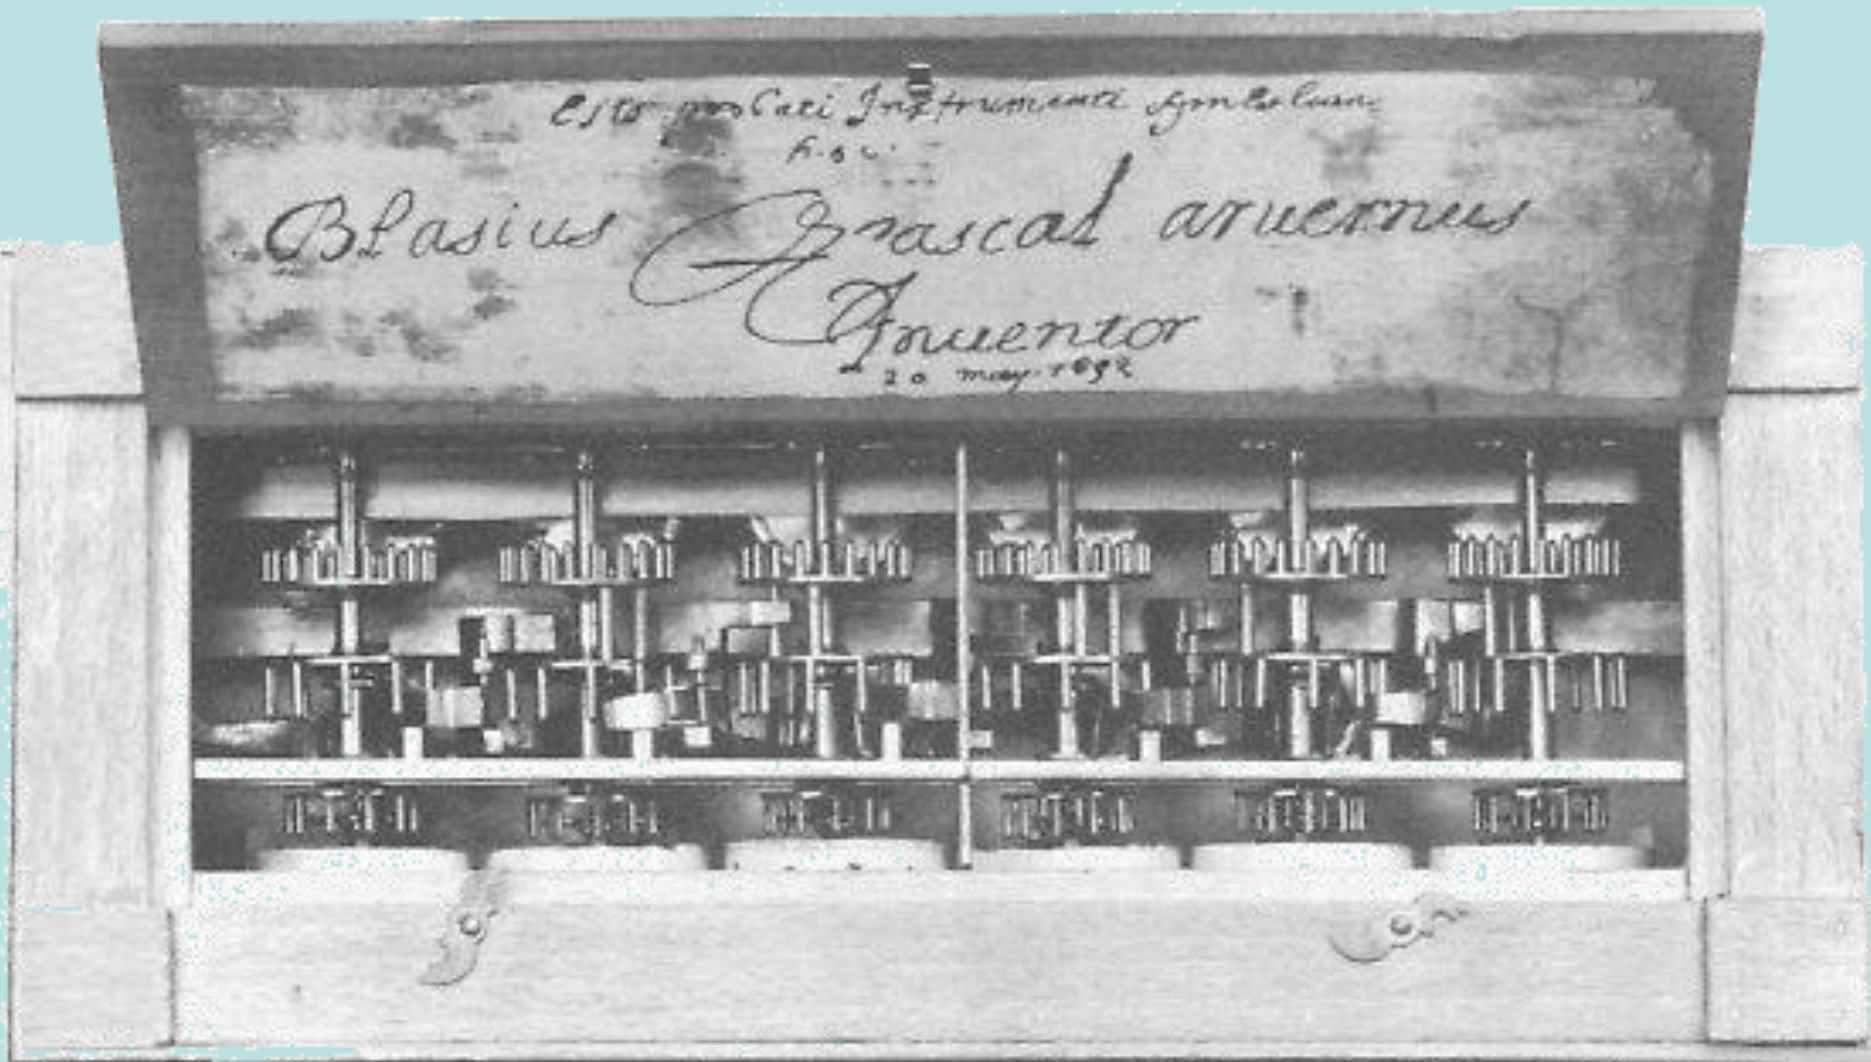 Esto probati Instrumenti symbolum
hoc
Blasius Pascal aruernus
Inuentor
20 may 1652